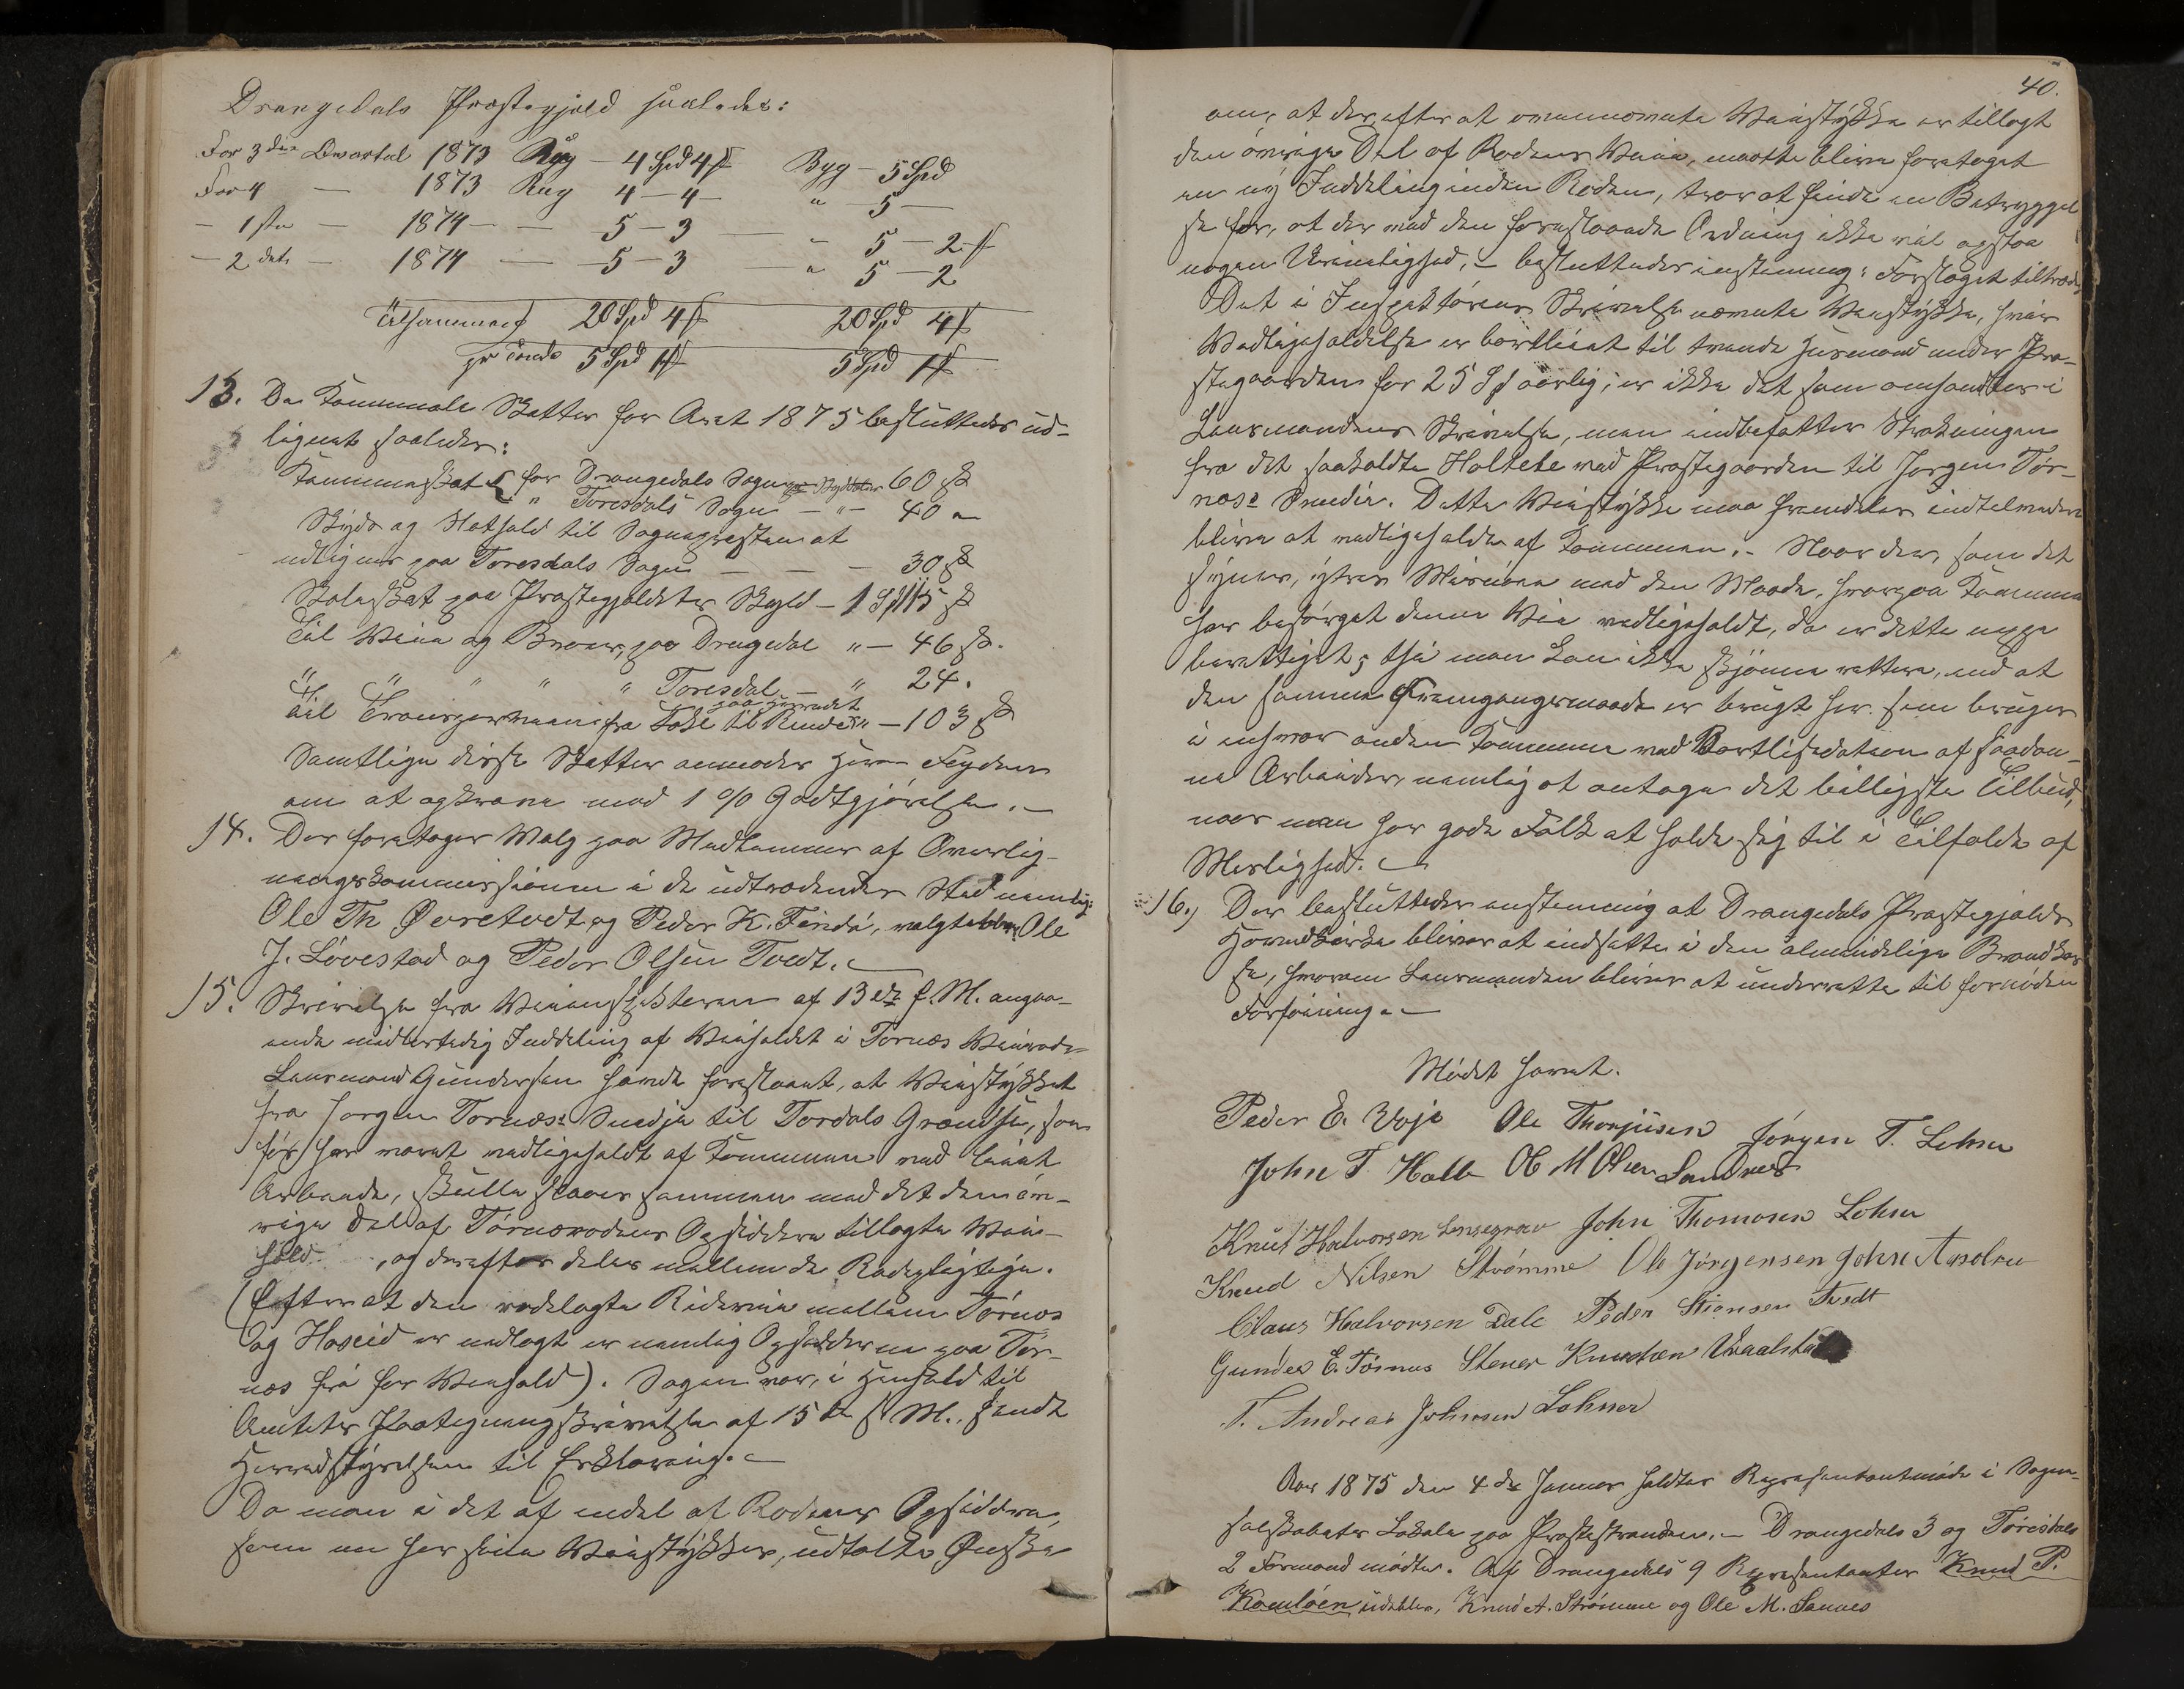 Drangedals Præstegjæld saaledes:
For 3die Qvartal 1873 Rug — 4 Spd 4 ß Byg — 5 Spd
For 4 — 1873 Rug 4 — 4 — " — 5 —
— 1ste — 1874 — — 5 — 3 — — 5 — 2 ß
— 2det — 1874 — 5 — 3 " 5 — 2
Tilsammen 20 Spd 4 ß 20 Spd 4 ß
pr Tønde 5 Spd 1 ß 5 Spd 1 ß
13. De Kommunale Skatter for Aaret 1875 besluttedes ud-
lignet saaledes:
Kommuneskat for Drangedals Sogn pr Skylddaler 60 ß
" Toresdals Sogn — " — 40 "
Skyds og Hothold til Sognepræsten at
udlignes paa Toresdals Sogn — — — 30 ß
Skoleskat paa Præstegjeldets Skyld — 1 Spd 15 ß
Til Veie og Broer, paa Drangedal " — 46 ß.
" " " " " Toresdal — " 24.
Til Transportveien fra Toke til paa Herredet " — 103 ß
Samtlige disse Skatter anmodes Herr Fogden
om at opkræve mod 1 % Godtgjørelse. —
14. Der foretoges Valg paa Medlemmer af Overlig-
ningskommissionen i de udtrædendes Sted nemlig:
Ole Th Øvretvedt og Peder K. Findø, valgte blev Ole
J. Løvestad og Peder Olsen Tvedt. —
15. Skrivelse fra Veiinspekteren af 13de f. M. angaa-
ende midlertidig Inddeling af Veiholdet i Tornæs Veirode.
Lensmand Gundersen havde foreslaaet, at Veistykket
fra Jørgen Tornæs's Smedje til Tordals Grændse, som
før har været vedligeholdt af Kommunen ved leiet
Arbeide, skulle slaaes sammen med det den øv-
rige Del af Tørnesrodens Opsiddere tillagte Vei-
hold, og derefter deles mellem de Rodepligtige.
(Efter at den nedlagte Rideveie mellem Tørnes
og Hoseid er nedlagt er nemlig Opsidderne paa Tør-
nes fri for Veihold). Sagen var, i Henhold til
Amtets Paategningsskrivelse af 15de f. M., sendt
Herredstyrelsen til Erklæring. —
Da man i det af endel af Rodens Opsiddere,
som nu har sine Veistykker, udtalte Ønske
40.
om, at der, efter at ovennævnte Veistykke er tillagt
den øvrige Del af Rodens Veie, maatte blive foretaget
en ny Inddeling inden Roden, tror at finde en Betryggel
se for, at der med den foreslaaede Ordning ikke vil opstaa
nogen Urimelighed, — besluttedes enstemmig: Forslaget tiltrædes
Det i Inspektørens Skrivelse nævnte Veistykke, hvis
Vedligeholdelse er bortliciteret til tvende Husmænd under Præ-
stegaarden for 25 Spd aarlig, er ikke det som omhandles i
Lensmandens Skrivelse, men indbefatter Strækningen
fra det saakaldte Holtete ved Præstegaarden til Jørgen Tør-
næs's Smedie. Dette Veistykke maa fremdeles indtil videre
blive at vedligeholde af Kommunen. — Naar der, som det
synes, ytres Misnøie med den Maade, hvorpaa Kommunen
har besørget denne Vei vedligeholdt, da er dette neppe
berettiget; thi man kan ikke skjønne rettere, end at
den samme Fremgangsmaade er brugt her som bruges
i enhver anden Kommune ved Bortlicitation af saadan-
ne Arbeider, nemlig at antage det billigste Tilbud,
naar man har gode Folk at holde sig til i Tilfælde af
Mislighed. —
16., Der besluttedes enstemmig at Drangedals Præstegjælds
Hovedkirke bliver at indsætte i den almindelige Brandkas
se, hvorom Lensmanden bliver at underrette til fornøden
Forføining. —
Mødet hævet.
Peder E. Voje Ole Thorjusen Jørgen T. Lohne
John T. Halle Ole M Olsen Sandnes
Knut Halvorsen Lensegrav John Thomesen Lohne
Knud Nilsen Strømme Ole Jørgensen John Aasolsen
Claus Halvorsen Dale Peder Stiansen Tvedt
Gunder E. Tørnes Stener Knudsen Vraalstad
T. Andreas Johnsen Lohner
Aar 1875 den 4de Januar holdtes Repræsentantmøde i Sogne-
selskabets Lokale paa Præstestranden. — Drangedals 3 og Tøresdals
2 Formænd mødte. Af Drangedals 9 Repræsentanter Knud P.
udeblev, Knud A. Strømme og Ole M. Sannes